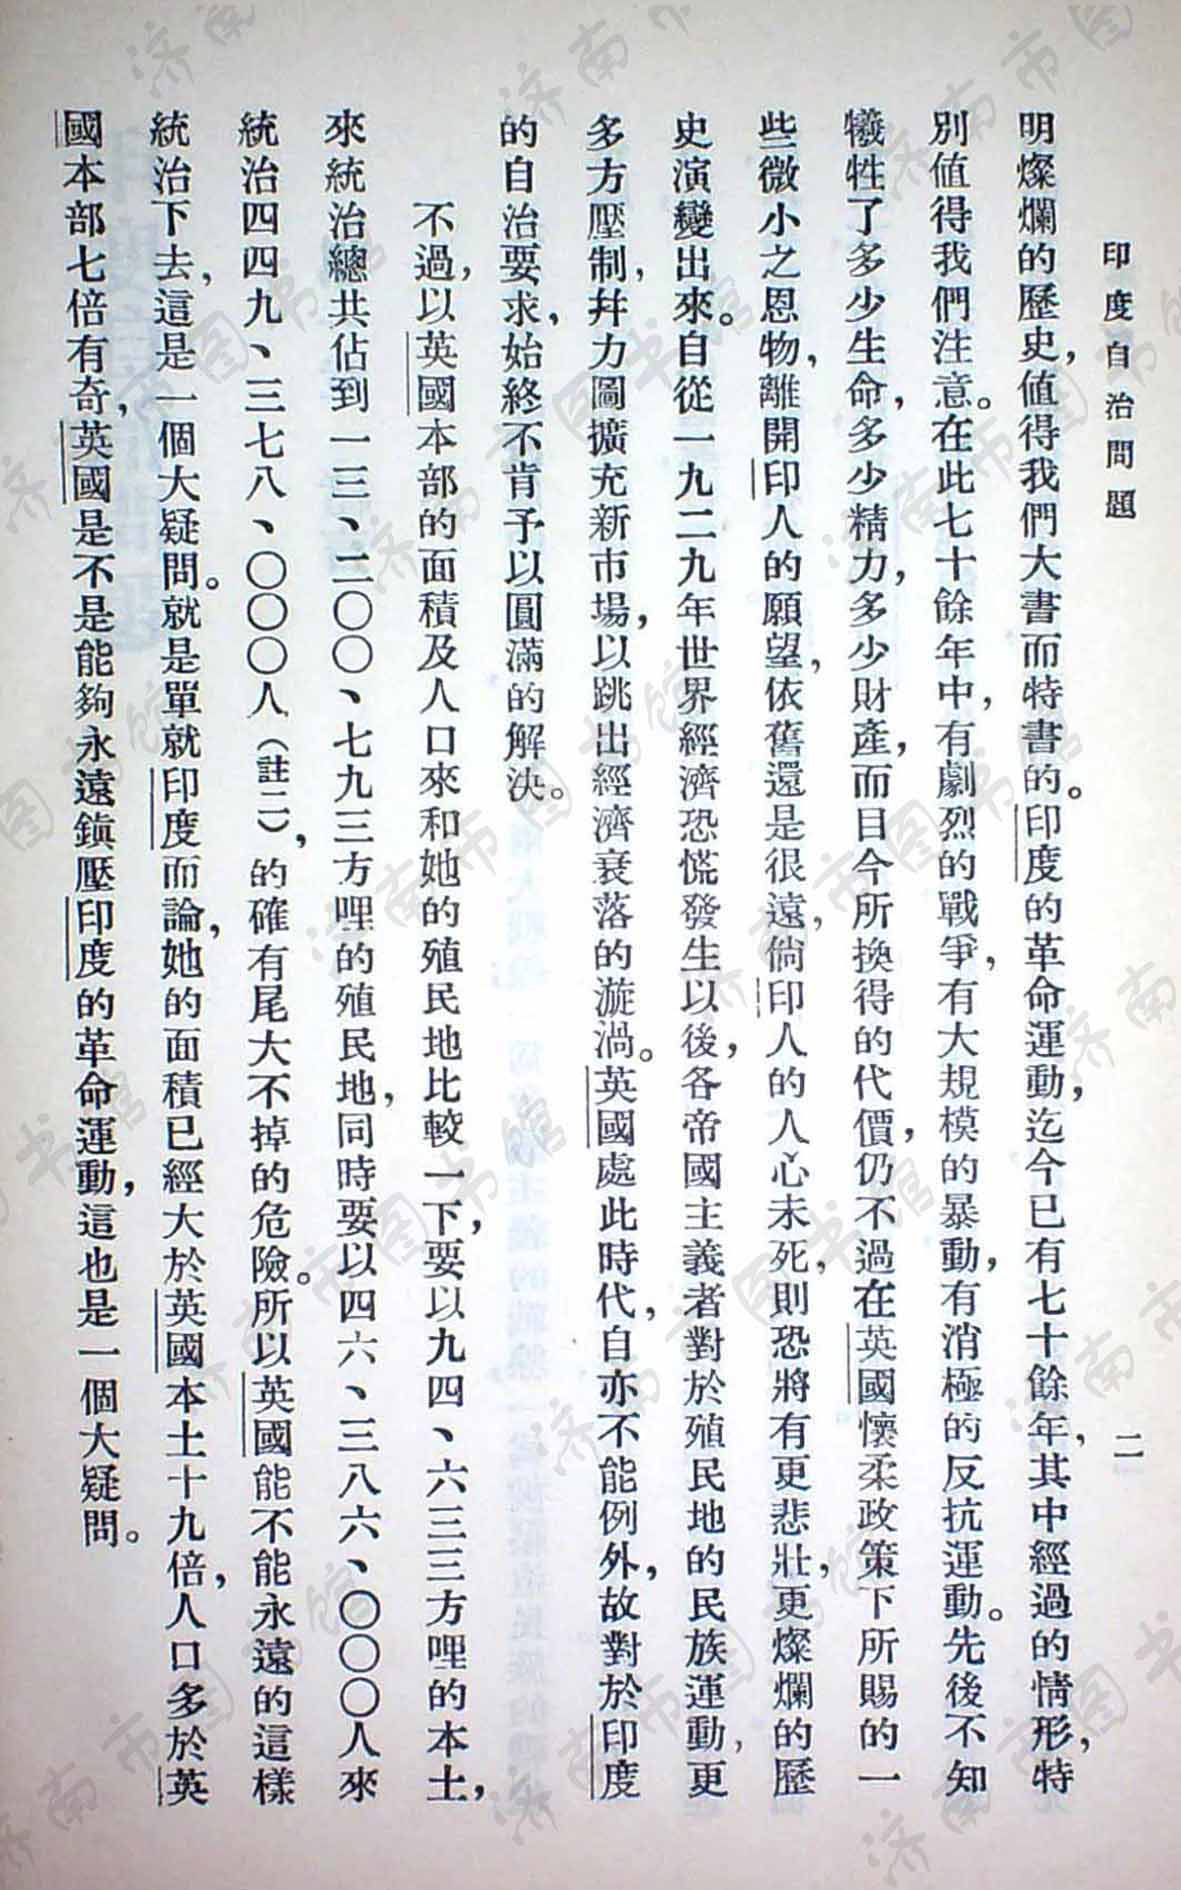 印度自治問題
二
明燦爛的歷史，值得我們大書而特書的。印度的革命運動，迄今已有七十餘年，其中經過的情形，特
別值得我們注意。在此七十餘年中，有劇烈的戰爭，有大規模的暴動，有消極的反抗運動。先後不知
犧牲了多少生命，多少精力，多少財產，而目今所換得的代價，仍不過在英國懷柔政策下所賜的一
些微小之恩物，離開印人的願望，依舊還是很遠，倘印人的人心未死，則恐將有更悲壯，更燦爛的歷
史演變出來。自從一九二九年世界經濟恐慌發生以後，各帝國主義者對於殖民地的民族運動，更
多方壓制，幷力圖擴充新市場，以跳出經濟衰落的漩渦。英國處此時代，自亦不能例外，故對於印度
的自治要求，始終不肯予以圓滿的解決。
不過，以英國本部的面積及人口來和她的殖民地比較一下，要以九四、六三三方哩的本土，
來統治總共佔到一三、二〇〇、七九三方哩的殖民地，同時要以四六、三八六、〇〇〇人來
統治四四九、三七八、〇〇〇人（註二），的確有尾大不掉的危險。所以英國能不能永遠的這樣
統治下去，這是一個大疑問。就是單就印度而論，她的面積已經大於英國本土十九倍，人口多於英
國本部七倍有奇，英國是不是能夠永遠鎮壓印度的革命運動，這也是一個大疑問。
济南市图书馆